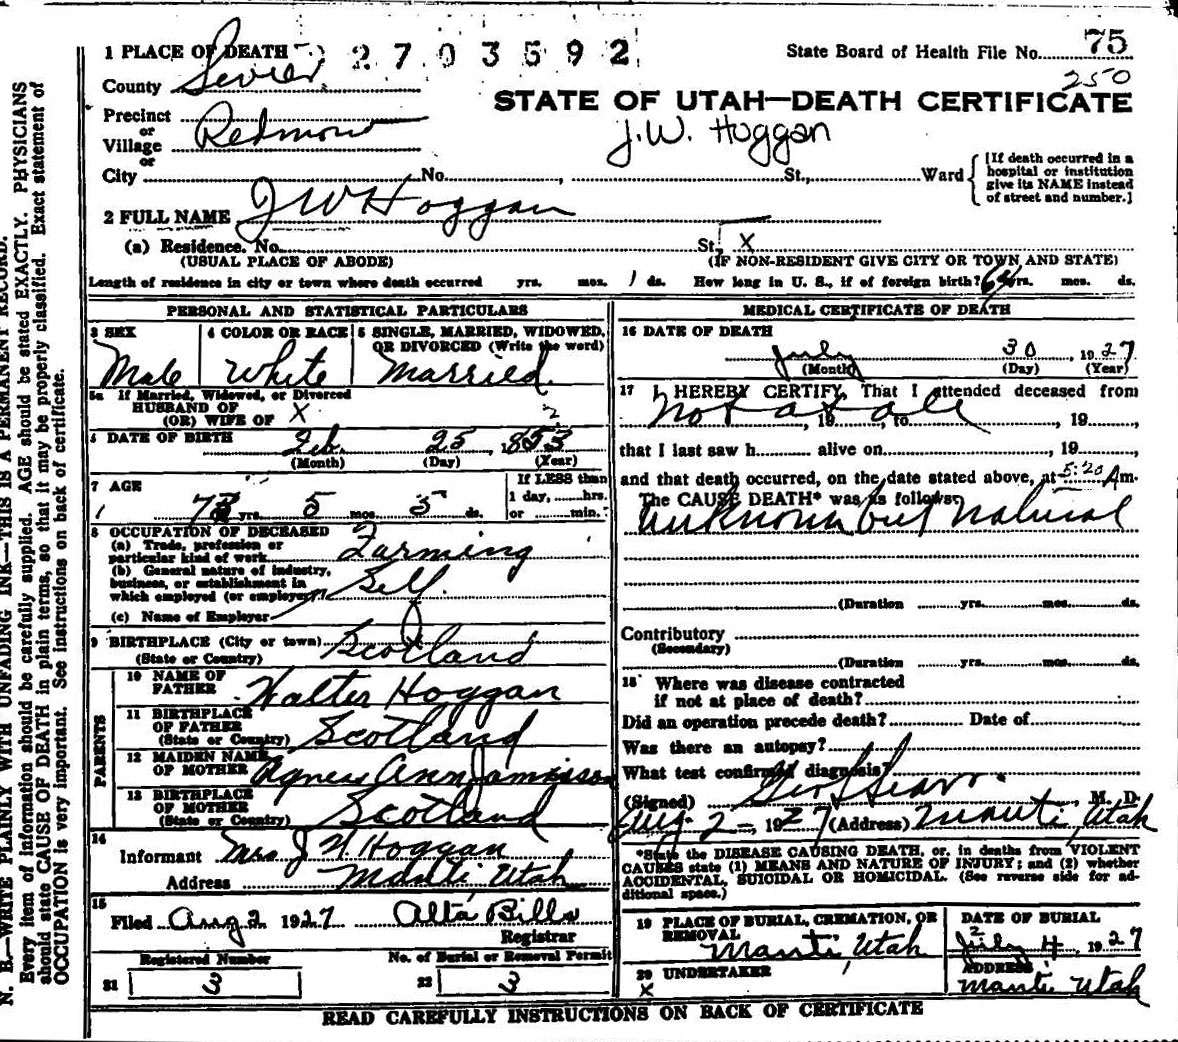 N. B.—WRITE PLAINLY WITH UNFADING INK—THIS IS A PERMANENT RECORD.
Every item of information should be carefully supplied. AGE should be stated EXACTLY. PHYSICIANS
should state CAUSE OF DEATH in plain terms, so that it may be properly classified. Exact statement of
OCCUPATION is very important. See instructions on back of certificate.
1 PLACE OF DEATH 2703592
State Board of Health File No. 75
250
County Sevier
STATE OF UTAH—DEATH CERTIFICATE
Precinct
or
Village Redmond
J.W. Hoggan
or
City No. , St., Ward
[If death occurred in a
hospital or institution
give its NAME instead
of street and number.]
2 FULL NAME J W Hoggan
(a) Residence. No. St. X
(USUAL PLACE OF ABODE) (IF NON-RESIDENT GIVE CITY OR TOWN AND STATE)
Length of residence in city or town where death occurred yrs. mos. 1 ds. How long in U. S., if of foreign birth? 64 yrs. mos. ds.
PERSONAL AND STATISTICAL PARTICULARS
3 SEX
Male
4 COLOR OR RACE
White
5 SINGLE, MARRIED, WIDOWED,
OR DIVORCED (Write the word)
Married
5a If Married, Widowed, or Divorced
HUSBAND OF
(OR) WIFE OF X
6 DATE OF BIRTH Feb. 25, 1853
2
(Month) (Day) (Year)
7 AGE
yrs. 5 mos. 5 ds.
If LESS than
1 day, hrs.
or min.
8 OCCUPATION OF DECEASED
(a) Trade, profession or
particular kind of work Farming
(b) General nature of industry,
business, or establishment in
which employed (or employer) Self
(c) Name of Employer
9 BIRTHPLACE (City or town)
(State or Country) Scotland
PARENTS
10 NAME OF
FATHER Walter Hoggan
11 BIRTHPLACE
OF FATHER
(State or Country) Scotland
12 MAIDEN NAME
OF MOTHER Agnes Ann Jamieson
13 BIRTHPLACE
OF MOTHER
(State or Country) Scotland
14
Informant Mrs J W Hoggan
Address Manti Utah
15
Filed Aug 2 1927 Alta Bills
Registrar
Registered Number
21 3
No. of Burial or Removal Permit
22 3
MEDICAL CERTIFICATE OF DEATH
16 DATE OF DEATH
July 30, 1927
(Month) (Day) (Year)
17 I HEREBY CERTIFY, That I attended deceased from
not at all, 19, to , 19,
that I last saw h alive on , 19
and that death occurred, on the date stated above, at 5:20 A m.
The CAUSE DEATH* was as follows:
Unknown but natural
(Duration yrs. mos. ds.
Contributory
(Secondary)
(Duration yrs. mos. ds.
18 Where was disease contracted
if not at place of death?
Did an operation precede death? Date of
Was there an autopsy?
What test confirmed diagnosis?
(Signed) , M. D.
Aug 2—, 1927 (Address) Manti, Utah
*State the DISEASE CAUSING DEATH, or, in deaths from VIOLENT
CAUSES state (1) MEANS AND NATURE OF INJURY; and (2) whether
ACCIDENTAL, SUICIDAL OR HOMICIDAL. (See reverse side for ad-
ditional space.)
19 PLACE OF BURIAL, CREMATION, OR
REMOVAL
Manti, Utah
DATE OF BURIAL
2
July 4, 1927
20 UNDERTAKER
X
ADDRESS
Manti Utah
READ CAREFULLY INSTRUCTIONS ON BACK OF CERTIFICATE